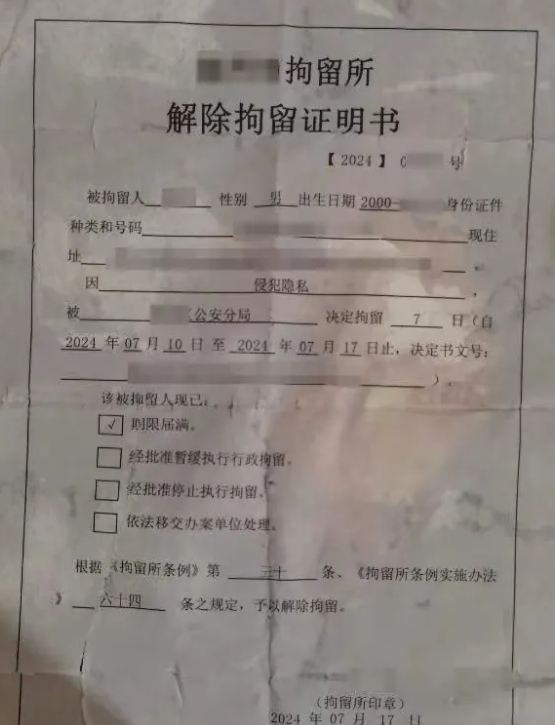 拘留所
解除拘留证明书
【2024】0 号
被拘留人 性别 男 出生日期 2000- 身份证件
种类和号码 现住
址 。
因 侵犯隐私 ，
被 公安分局 决定拘留 7 日（自
2024 年 07 月 10 日 至 2024 年 07 月 17 日止，决定书文号：
）。
该被拘留人现已：
√ 期限届满。
经批准暂缓执行行政拘留。
经批准停止执行拘留。
依法移交办案单位处理。
根据《拘留所条例》第 三十 条、《拘留所条例实施办法
》 六十四 条之规定，予以解除拘留。
（拘留所印章）
2024 年 07 月 17 日